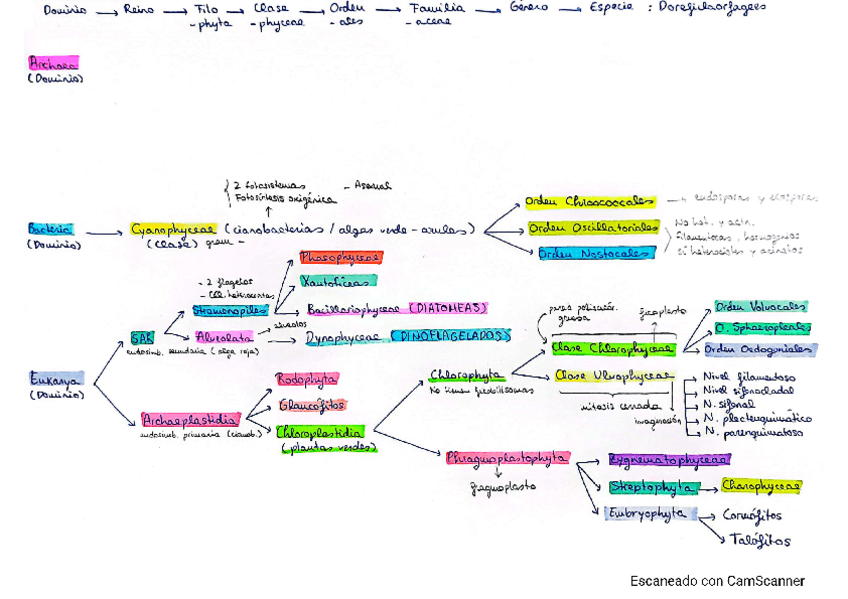 Dominio → Reino → Filo → Clase → Orden → Familia → Género → Especie :
-phyta -phyceae -ales -aceae
Archaea
(Dominio)
{ 2 fotosistemas - Asexual
Fotosíntesis oxigénica
Bacteria → Cyanophyceae (cianobacterias / algas verde-azules)
(Dominio) (Clase) gram -
Orden Chroococcales → endosporas y exosporas
Orden Oscillatoriales
Orden Nostocales
No het. y acin.
filamentosas, hormogonios
Sí heterocistes y acinetos
Phaeophyceae
- 2 flagelos
Xantofíceas
Stramenopiles
Bacillariophyceae (DIATOMEAS)
SAR
Alveolata → Dynophyceae (DINOFLAGELADOS)
alveolos
endosimb. secundaria (alga roja)
Eukarya
(Dominio)
Archaeplastidia
endosimb. primaria (cianob.)
Rodophyta
Glaucófitos
Chloroplastidia
(plantas verdes)
Chlorophyta
gruesa
ficoplasto
Clase Chlorophyceae
Clase Ulvophyceae
mitosis cerrada
invaginación
Orden Volvocales
O. Sphaeropleales
Orden Oedogoniales
Nivel filamentoso
Nivel sifonocladal
N. sifonal
N. plectenquimático
N. parenquimatoso
Phragmoplastophyta
fragmoplasto
Zygnematophyceae
Streptophyta → Charophyceae
Embryophyta
Cormófitos
Talófitos
Escaneado con CamScanner